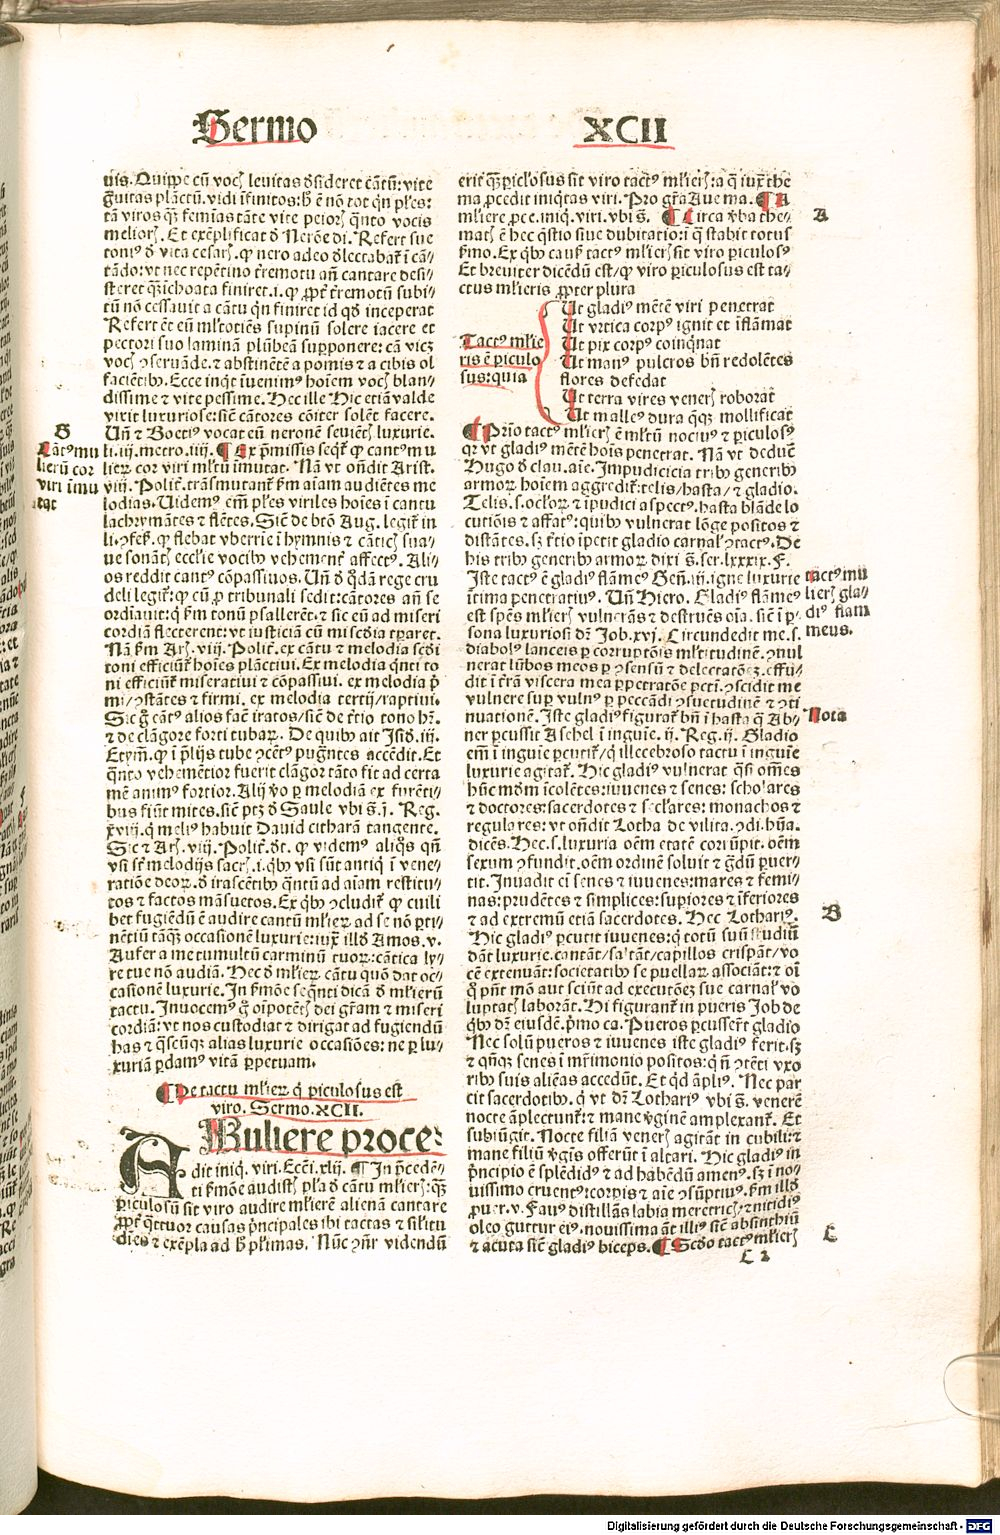 Sermo XCII
uis. Quippe cũ vocꝭ leuitas ꝺsideret cãtũ: vite
g̃uitas plãctũ. vidi ĩfinitos: hꝰ ẽ nõ tot qn̄ pl̃es:
tã viros qꝫ femĩas tãte vite peiorꝭ q̃nto vocis
meliorꝭ. Et exẽplificat ꝺ Nerõe di. Refert sue
toniꝰ ꝺ vita cesarꝭ. ꝙ nero adeo ꝺlectabat̃ ĩ cã⸗
tãdo: vt nec repẽtino t̃remotu añ cantare desi⸗
steret qꝫ ichoata finiret. i. ꝙ ꝓpt̃ t̃remotũ subi⸗
tũ nõ cessauit a cãtu qn̄ finiret id qꝺ inceperat
Refert ẽt eũ ml̃totiẽs supinũ solere iacere et
pectori suo laminã plũbeã supponere: cã vicꝫ
vocꝭ ꝯseruãde. ⁊ abstinẽtẽ a pomis ⁊ a cibis ol
faciẽtibꝰ. Ecce inqͥt ĩuenimꝰ hoĩem vocꝭ blan⸗
dissime ⁊ vite pessime. Hec ille Hic etiã valde
vixit luxuriose: sic̃ cãtores cõiter solẽt facere.
Uñ ⁊ Boetiꝰ vocat eũ neronẽ seuiẽtꝭ luxurie.
li. iij. metro. iiij. ¶ Ex p̃missis seqͥt̃ ꝙ cantꝰ mu
lierꝝ cor viri ml̃tũ ĩmutat. Nã vt oñdit Arist.
viij. Polit̃. trãsmutant̃ ẽm aĩam audiẽtes me
lodias. Uidemꝰ em̃ pl̃es viriles hoĩes ĩ cantu
lachrymãtes ⁊ flẽtes. Sic̃ de bt̃o Aug. legit̃ in
li. ꝯfeſ. ꝙ flebat vberrie ĩ hymnis ⁊ cãticꝭ sua⸗
ue sonãtꝭ eccl̃ie vocibꝰ vehement̃ affectꝰ. Ali⸗
os reddit cantꝰ cõpassiuos. Uñ ꝺ qͦdã rege cru
deli legit̃: ꝙ cũ ꝓ tribunali sedit: cãtores añ se
ordĩauit: ꝙ ẽm tonũ psallerẽt. ⁊ sic eũ ad miseri
cordiã flecterent: vt iusticiã cũ mĩscd̃ia tꝑaret.
Nã ẽm Arꝭ. viij. Polit̃. ex cãtu ⁊ melodia scd̃i
toni efficiũt̃ hoĩes plãctiui. Ex melodia qͥnti to
ni efficiũt̃ miseratiui ⁊ cõpassiui. ex melodia p̃
mi/ ꝯstãtes ⁊ firmi. ex melodia tertij/ raptiui.
Sic g̃ cãtꝰ alios facͥt iratos/ sic̃ de t̃tio tono hr̃.
⁊ de clãgore forti tubaꝝ. De quibꝰ ait Isiđ. iij.
Etym̃. ꝙ ĩ p̃lijs tube ꝯcẽtꝰ pug̃ntes accẽdit. Et
q̃nto vehemẽtior fuerit clãgor tãto fit ad certa
mẽ animꝰ fortior. Alij ꝟo ꝑ melodiã ex furẽti⸗
bus fiũt mites. sic̃ ptꝫ ꝺ Saule vbi s̃. j. Reg.
xviij. qͥ meliꝰ habuit Dauid citharã tangente.
Sic ⁊ Arꝭ. viij. Polit̃. ꝺt. ꝙ videmꝰ aliqͦs qñ
vsi st̃ melodijs sacrꝭ. i. qͥbꝰ vsi sũt antiqͥ ĩ vene⸗
ratiõe deoꝝ. ꝺ irascẽtibꝰ qͥntũ ad aĩam restitu⸗
tos ⁊ factos mãsuetos. Ex qͥbꝰ ꝯcludit̃ ꝙ cuili
bet fugiẽdũ ẽ audire cantũ ml̃ieꝝ ad se nõ ꝑti⸗
nẽtiũ tãqꝫ occasionẽ luxurie: iuxͣ illđ Amos. v.
Aufer a me tumultũ carminũ tuoꝝ: cãtica ly⸗
re tue nõ audiã. Hec ꝺ ml̃ieꝝ cãtu quõ dat oc⸗
casionẽ luxurie. In ẽmõe seqͥnti dicã ꝺ ml̃ierũ
tactu. Inuocemꝰ g̃ oĩpotẽtꝭ dei gr̃am ⁊ miseri
cordiã: vt nos custodiat ⁊ dirigat ad fugiendũ
has ⁊ qͣscũqꝫ alias luxurie occasiões: ne ꝑ lu⸗
xuriã ꝑdamꝰ vitã ꝑpetuam.
¶ De tactu ml̃ieꝝ qͥ piculosus est
viro. Sermo. XCII.
A Muliere proce⸗
dit iniqͥ. viri. Ecc̃i. xlij. ¶ In p̃cedẽ⸗
ti ẽmõe audistꝭ pl̃a ꝺ cãtu ml̃ierꝭ: qꝫ
piculosũ sit viro audire ml̃ierẽ alienã cantare
ꝓpt̃ qͣttuor causas p̃ncipales ibi tactas ⁊ sil̃itu
dĩes ⁊ exẽpla ad h̃ pl̃imas. Nũc ꝯñr videndũ
G
Cãtꝰ mu
lierũ cor
viri ĩmu
tat
erit qꝫ piclosus sit viro tactꝰ ml̃ierꝭ: a qͣ iuxͣ the
ma ꝓcedit iniqͥtas viri. Pro gr̃a Aue ma. ¶ A
ml̃iere ꝓce. iniq. viri. vbi s̃. ¶ Circa ꝟba the⸗
matꝭ ẽ hec qͣstio siue dubitatio: ĩ qͣ stabit totus
ẽmo. Ex qͥbꝰ causꝭ tactꝰ ml̃ierꝭ sit viro piculosꝰ
Et breuiter dicẽdũ est/ ꝙ viro piculosus est ta⸗
ctus ml̃ieris ꝓpter plura
Tactꝰ ml̃ie
ris ẽ piculo
sus: quia
Ut gladiꝰ mẽtẽ viri penetrat
Ut vrtica corpꝰ ignit et ĩflãmat
Ut pix corpꝰ coinqͥnat
Ut manꝰ pulcros bñ redolẽtes
flores defedat
Ut terra vires venerꝭ roborat
Ut malleꝰ dura qͣqꝫ mollificat
¶ Prĩo tactꝰ ml̃ierꝭ ẽ ml̃tũ nociuꝰ ⁊ piculosꝰ
qꝛ vt gladiꝰ mẽtẽ hoĩs penetrat. Nã vt deducͥt
Hugo ꝺ clau. aĩe. Impudicicia tribꝰ generibꝰ
armoꝝ hoĩem aggredit̃: telis/ hasta/ ⁊ gladio.
Telis. s. ocl̃oꝝ ⁊ ĩpudici aspectꝰ. hasta blãde lo
cutiõis ⁊ affatꝰ: quibꝰ vulnerat lõge positos ⁊
distãtes. sꝫ t̃tio ĩpetit gladio carnal̃ ꝯtactꝰ. De
his tribꝰ generibꝰ armoꝝ dixi s̃. ser. lxxxix. F.
Iste tactꝰ ẽ gladiꝰ flãmeꝰ Geñ. iij. igne luxurie
ĩtima penetratiuꝰ. Uñ Hiero. Gladiꝰ flãmeꝰ
est spẽs ml̃ierꝭ vulnerãs ⁊ destruẽs oĩa. sic̃ ĩ ꝑ⸗
sona luxuriosi dr̃ Job. xvj. Circundedit me. s.
diabolꝰ lanceis ꝑ corruptõis ml̃titudinẽ. ꝯuul
nerat lũbos meos ꝑ ꝯsensũ ⁊ delectatõeꝫ. effu⸗
dit ĩ t̃rã viscera mea ꝑpetratõe pcti. ꝯscidit me
vulnere suꝑ vulnꝰ ꝑ peccãdi ꝯsuetudinẽ ⁊ ꝯti
nuationẽ. Iste gladiꝰ figurat̃ bñ ĩ hasta qͣ Ab⸗
ner percussit Asahel ĩ inguĩe. ij. Reg. ij. Gladio
em̃ ĩ inguĩe percutit̃, qͥ illecebroso tactu ĩ inguĩe
luxurie agitat̃. Hic gladiꝰ vulnerat qͣsi om̃es
hũc mũdm ĩcolẽtes: iuuenes ⁊ senes: scholares
⁊ doctores: sacerdotes ⁊ secl̃ares: monachos ⁊
regulares: vt oñdit Lotha de vilita. ꝯdi. hũa.
dicẽs. Hec. s. luxuria oẽm etatẽ corrũpit. oẽm
sexum ꝯfundit. oẽm ordinẽ soluit ⁊ gͣdũ ꝑuer⸗
tit. Inuadit eĩ senes ⁊ iuuenes: mares ⁊ femi⸗
nas: prudẽtes ⁊ simplices: suꝑiores ⁊ ĩferiores
⁊ ad extremũ etiã sacerdotes. Hec Lothariꝰ.
Hic gladiꝰ ꝑcutit iuuenes: qͥ totũ suũ studiũ
dãt luxurie. cantãt/ saltãt/ capillos crispãt/ vo
cẽ extenuãt: societatibꝰ se puellaꝝ associãt: ⁊ oĩ
qͦ pñt mõ aut sciũt ad executõeꝫ sue carnal̃ vo
luptatꝭ laborãt. Hi figurant̃ in pueris Job de
qͥbꝰ dr̃ eiusdẽ. p̃mo ca. Pueros ꝑcusser̃t gladio
Nec solũ pueros ⁊ iuuenes iste gladiꝰ ferit. sꝫ
⁊ qñqꝫ senes ĩ mr̃imonio positos: qͥ ñ ꝯtẽti vxo
ribꝰ suis aliẽas accedũt. Et qͥd ãpliꝰ. Nec par
cit sacerdotibꝰ. qͥ vt dr̃ Lothariꝰ vbi s̃. venerẽ
nocte ãplectunt̃: ⁊ mane ꝟginẽ amplexant̃. Et
subiũgit. Nocte filiã venerꝭ agitãt in cubili: ⁊
mane filiũ ꝟgis offerũt ĩ altari. Hic gladiꝰ in
p̃ncipio ẽ splẽdidꝰ ⁊ ad habẽdũ amenꝰ. sꝫ ĩ no⸗
uissimo cruentꝰ: corꝑis ⁊ aĩe ꝯsũptiuꝰ. ẽm illđ
ꝓuer. v. Fauꝰ distillãs labia meretricꝭ, ⁊ nitidiꝰ
oleo guttur eiꝰ. nouissima aũt illiꝰ sic̃ absinthiũ
⁊ acuta sic̃ gladiꝰ biceps. ¶ Scd̃o tactꝰ ml̃ierꝭ
A
tactꝰ mu
lierꝭ gla⸗
diꝰ flam
meus.
Nota
B
C
C 2
Digitalisierung gefördert durch die Deutsche Forschungsgemeinschaft - DFG